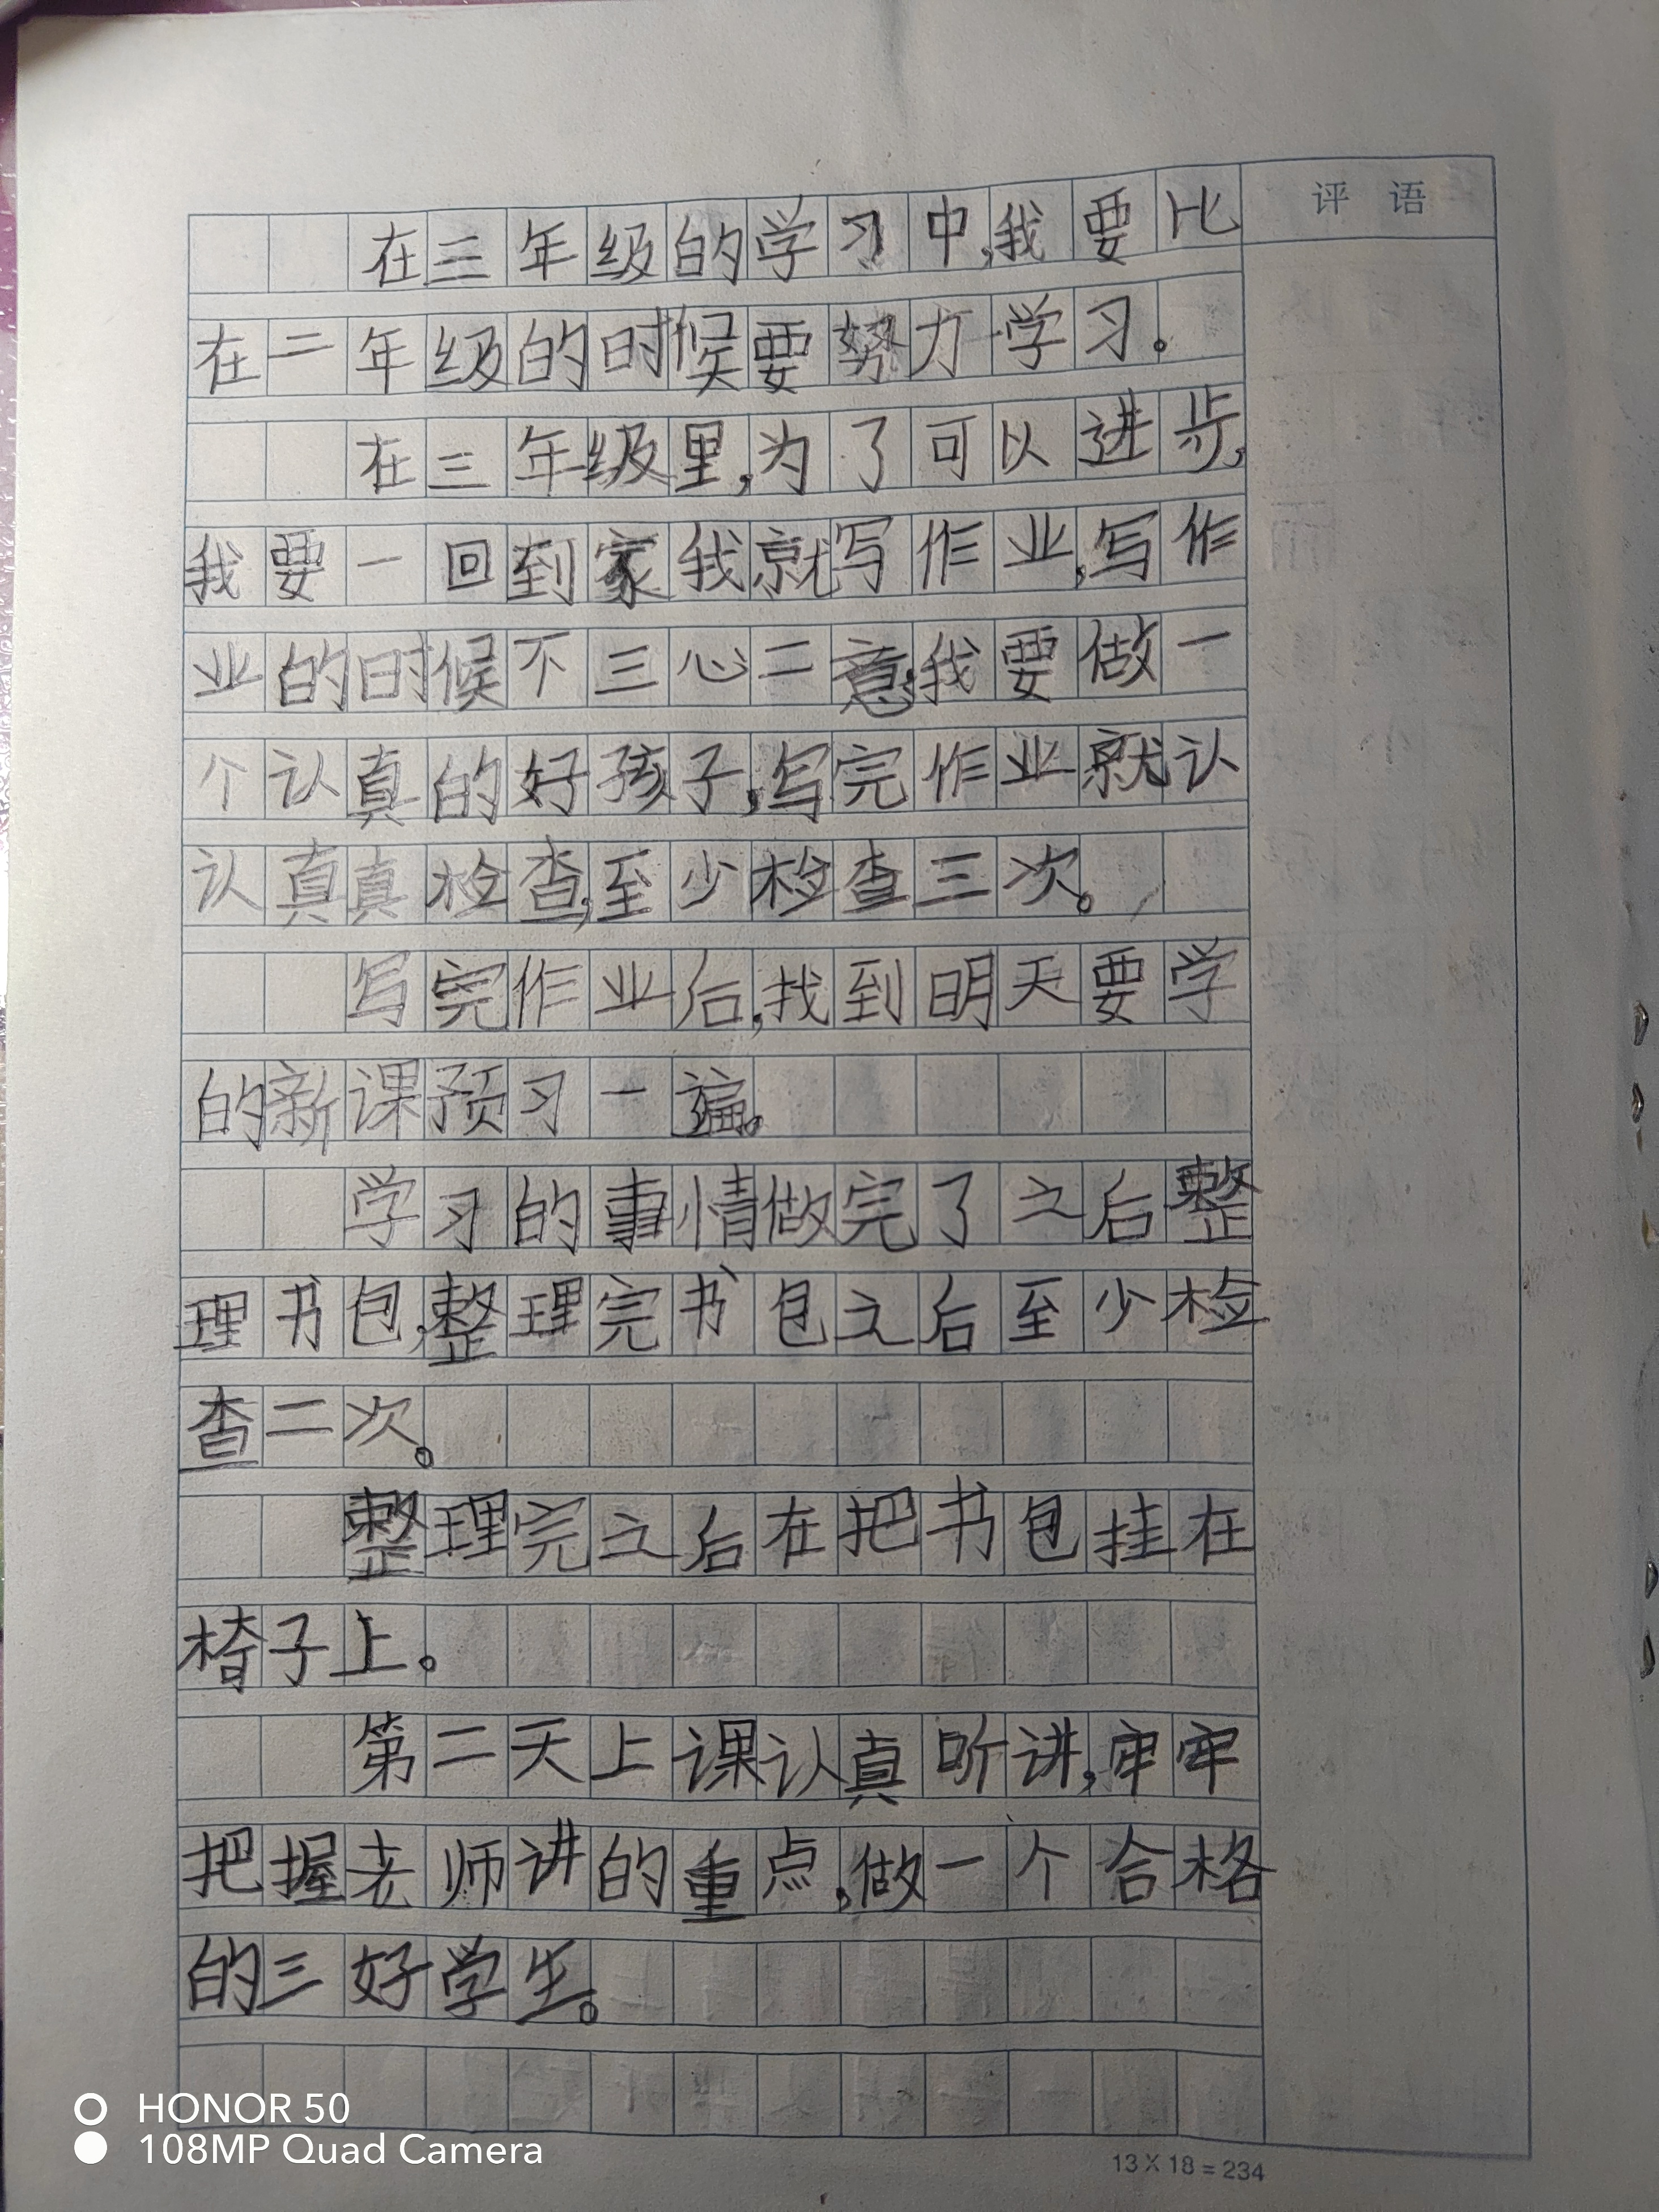 评 语
在三年级的学习中,我要比
在二年级的时候要努力学习。
在三年级里,为了可以进步,
我要一回到家我就写作业,写作
业的时候不三心二意,我要做一
个认真的好孩子,写完作业就认
认真真检查,至少检查三次。
写完作业后,找到明天要学
的新课预习一遍。
学习的事情做完了之后整
理书包,整理完书包之后至少检
查二次。
整理完之后在把书包挂在
椅子上。
第二天上课认真听讲,牢牢
把握老师讲的重点,做一个合格
的三好学生。
13×18=234
HONOR 50
108MP Quad Camera